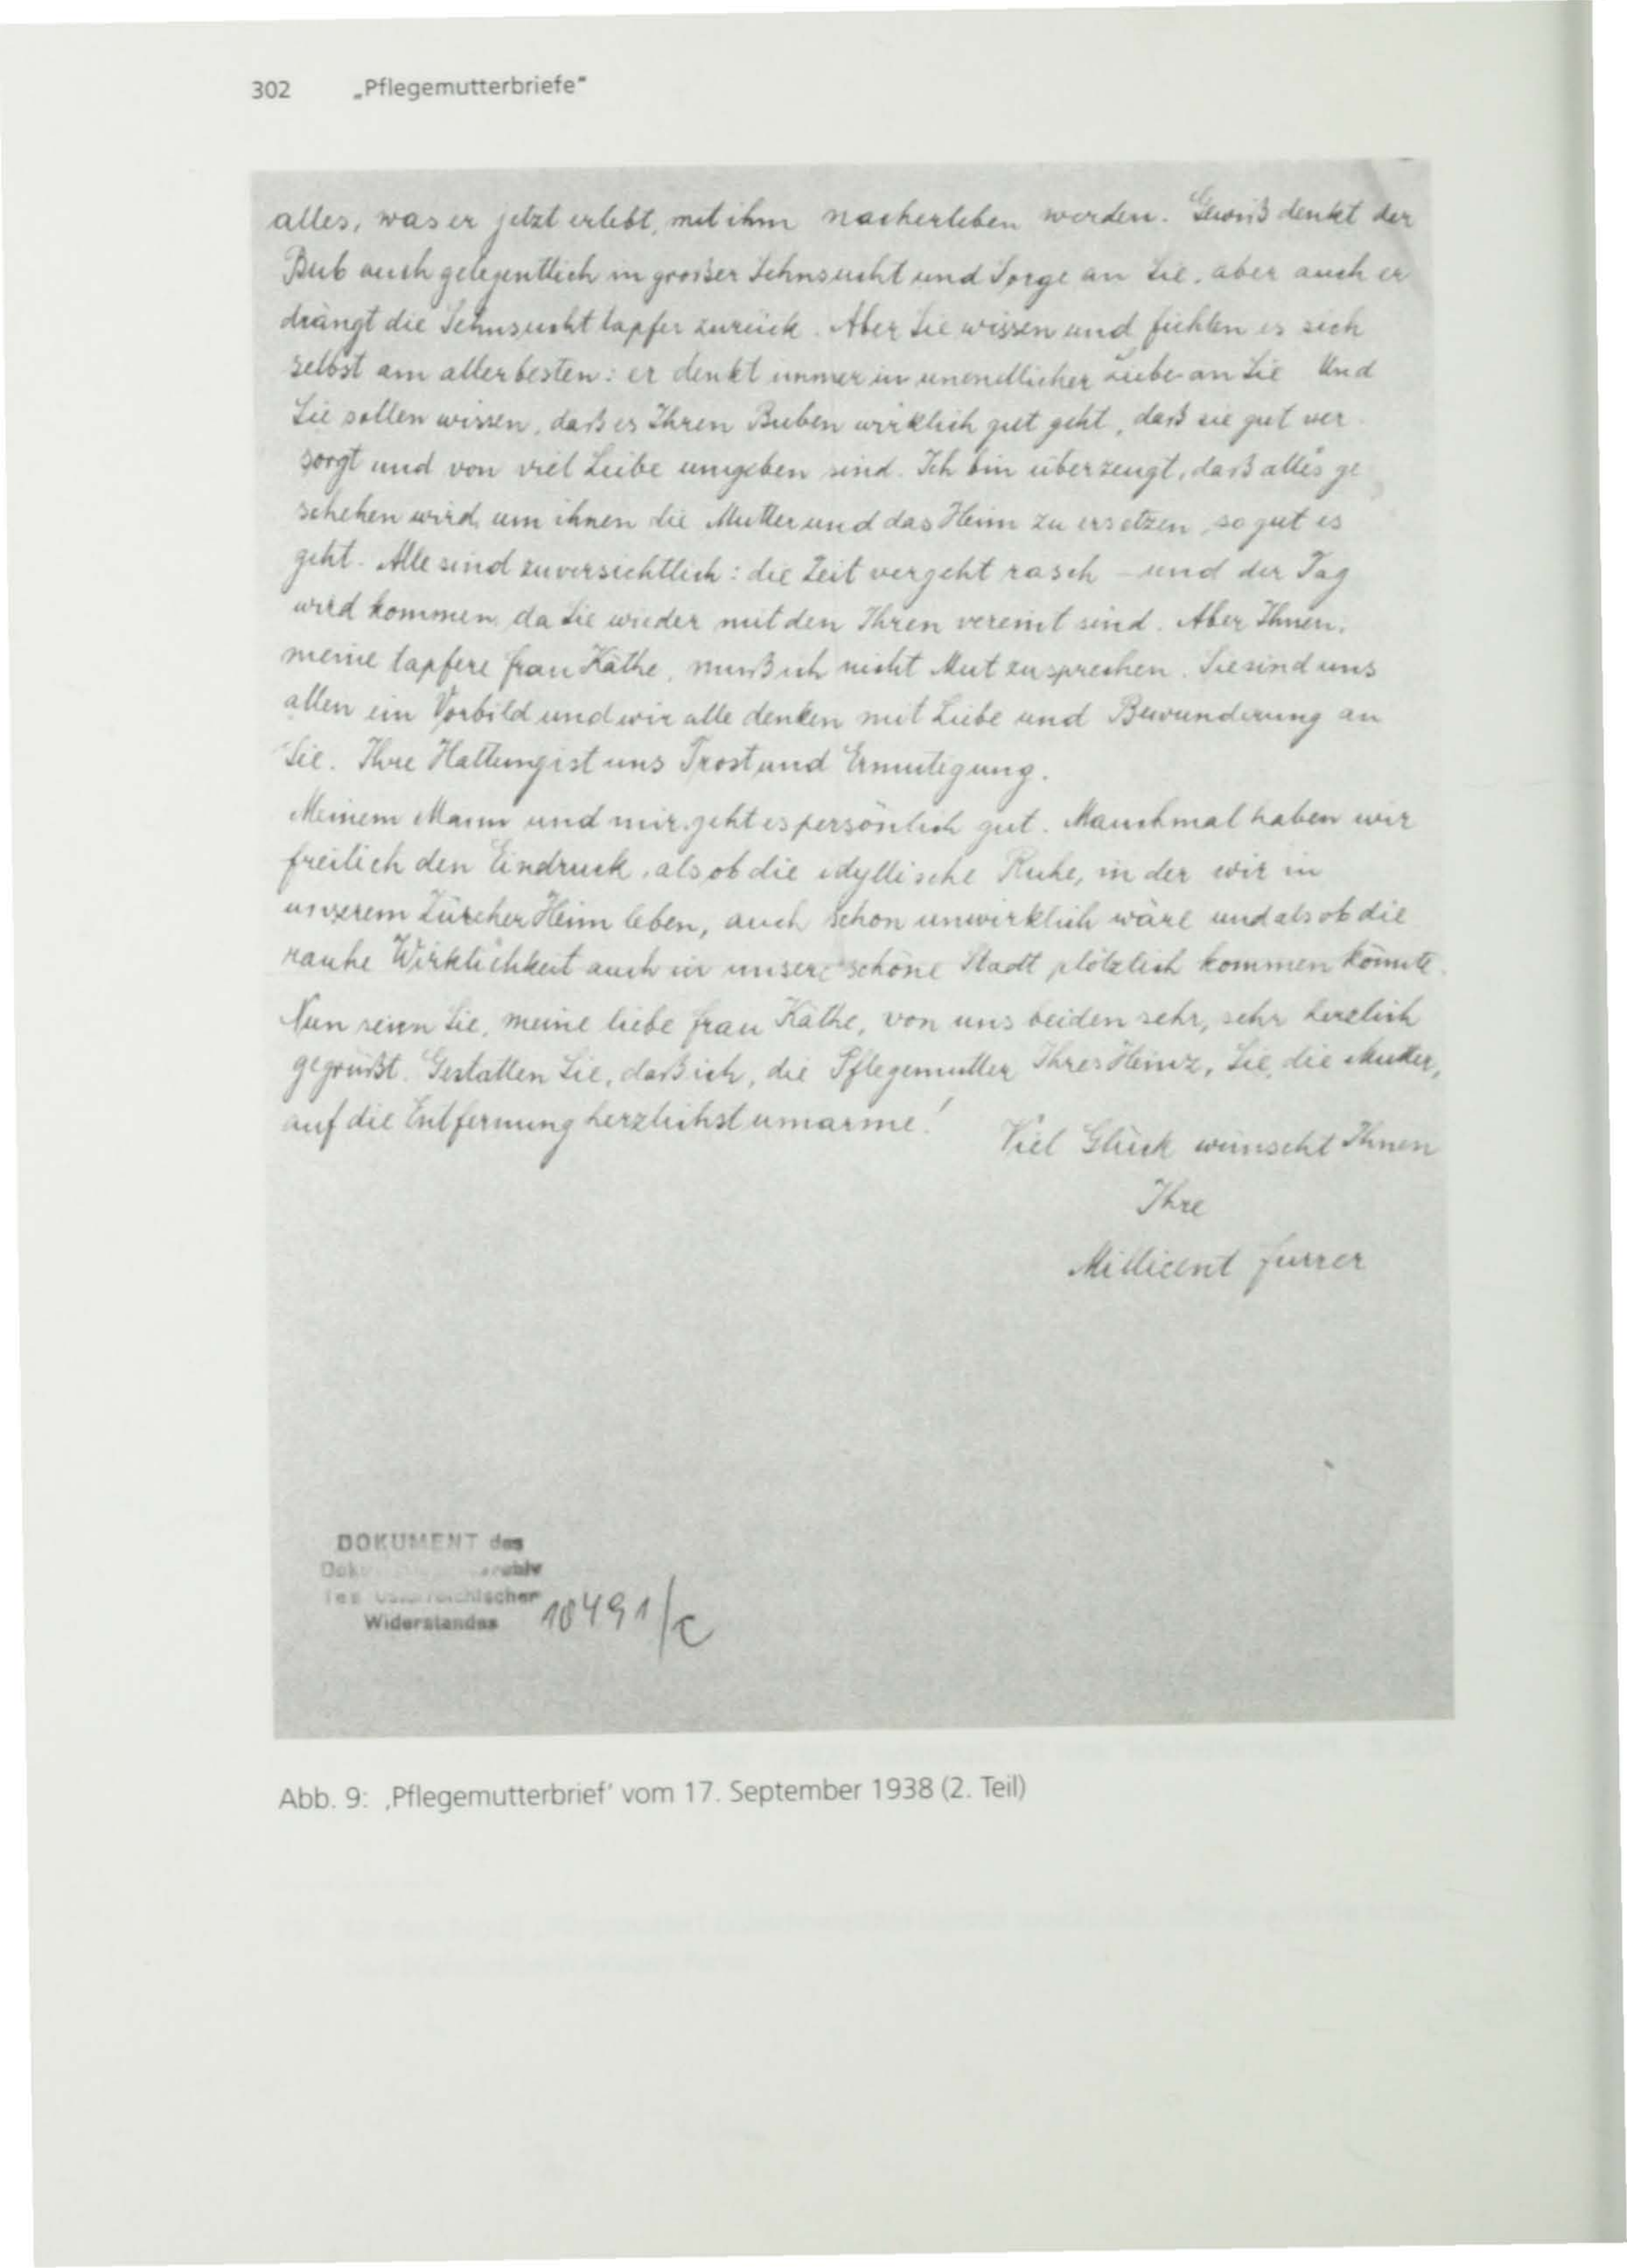 302 „Pflegemutterbriefe"
alles, was er jetzt erlebt, mit ihm nacherleben werden. Gewiß denkt der
Bub auch gelegentlich in großer Sehnsucht und Sorge an Sie, aber auch er
drängt die Sehnsucht tapfer zurück. Aber Sie wissen und fühlen es sich
selbst am allerbesten: er denkt immer in unendlicher Liebe an Sie Und
Sie sollen wissen, daß es Ihren Buben wirklich gut geht, daß sie gut ver
sorgt und von viel Liebe umgeben sind. Ich bin überzeugt, daß alles ge
schehen wird, um ihnen die Mutter und das Heim zu ersetzen, so gut es
geht. Alle sind zuversichtlich: die Zeit vergeht rasch – und der Tag
wird kommen, da Sie wieder mit den Ihren vereint sind. Aber Ihnen,
meine tapfere Frau Käthe, muß ich nicht Mut zusprechen. Sie sind uns
allen ein Vorbild und wir alle denken mit Liebe und Bewunderung an
Sie. Ihre Haltung ist uns Trost und Ermutigung.
Meinem Mann und mir geht es persönlich gut. Manchmal haben wir
freilich den Eindruck, als ob die idyllische Ruhe, in der wir in
unserem Zürcher Heim leben, auch schon unwirklich wäre und als ob die
rauhe Wirklichkeit auch in unsere schöne Stadt plötzlich kommen könnte.
Nun seien Sie, meine liebe Frau Käthe, von uns beiden sehr, sehr herzlich
gegrüßt. Gestatten Sie, daß ich, die Pflegemutter Ihres Heinz, Sie, die Mutter,
auf die Entfernung herzlichst umarme!
Viel Glück wünscht Ihnen
Ihre
Millicent Furrer
DOKUMENT des
Widerstandes 10491/c
Abb. 9: ‚Pflegemutterbrief' vom 17. September 1938 (2. Teil)